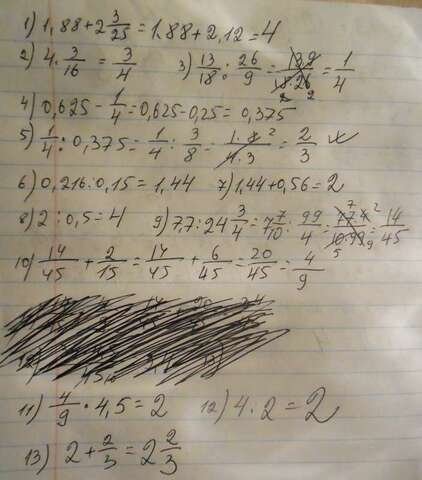 1) 1,88+2 3/25=1,88+2,12=4
2) 4·3/16=3/4 3) 13/18:26/9=13·9/18·26=1/4
4) 0,625-1/4=0,625-0,25=0,375
5) 1/4:0,375=1/4:3/8=1·8/4·3=2/3
6) 0,216:0,15=1,44 7) 1,44+0,56=2
8) 2:0,5=4 9) 7,7:24 3/4=7 7/10:99/4=77·4/10·99=14/45
10) 14/45+2/15=14/45+6/45=20/45=4/9
11) 4/9·4,5=2 12) 4:2=2
13) 2+2/3=2 2/3